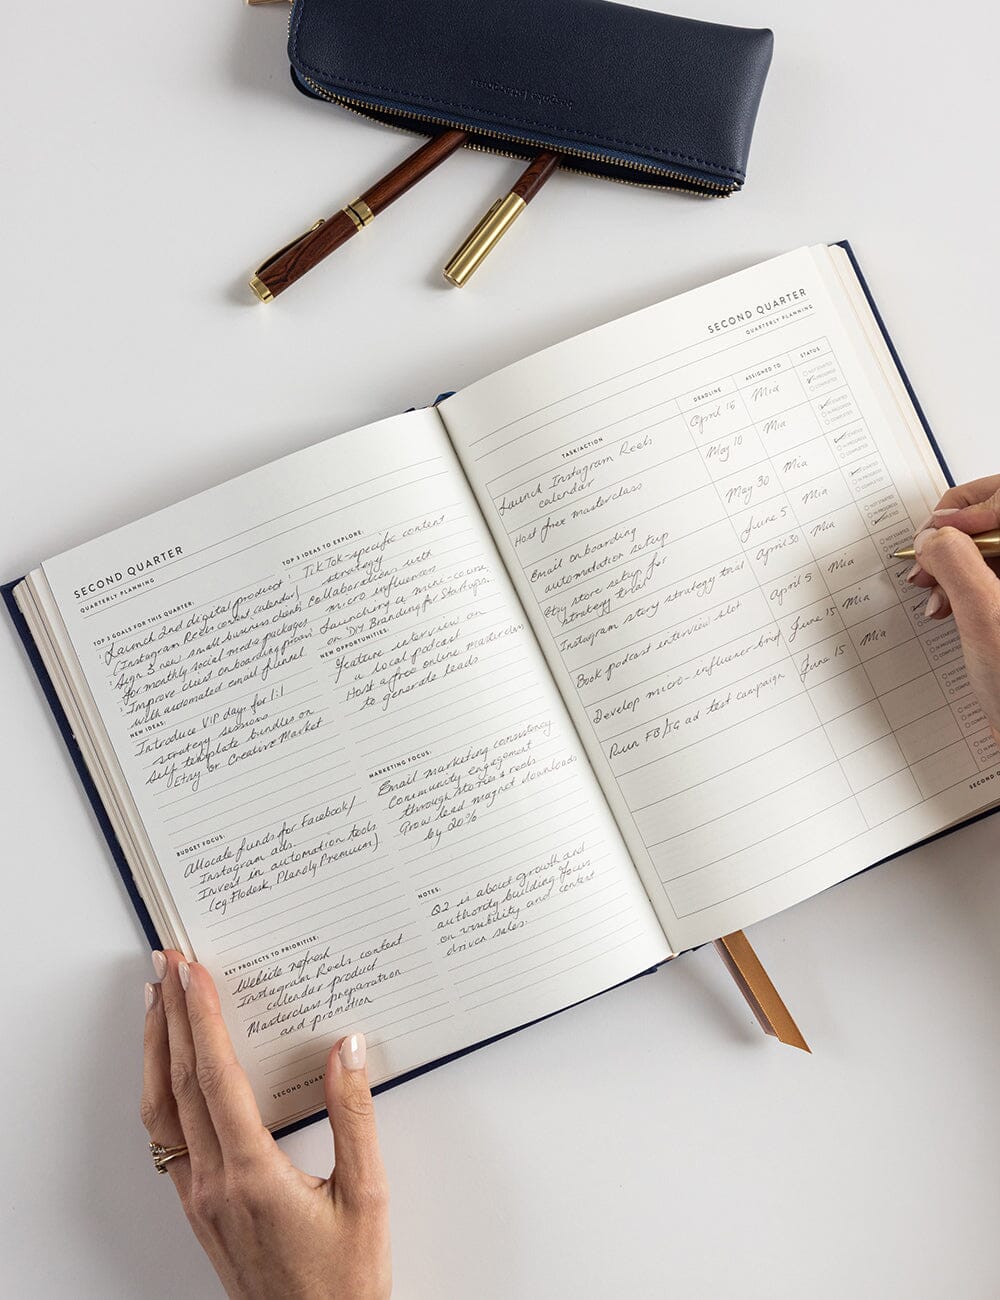 SECOND QUARTER
QUARTERLY PLANNING
TOP 3 GOALS FOR THIS QUARTER:
Launch 2nd digital product
(Instagram Reels content calendar)
Sign 3 new small business clients
for monthly social media packages
Improve client onboarding process
with automated email funnel
TOP 3 IDEAS TO EXPLORE:
TikTok-specific content
strategy
Collaborations with
micro influencers
Launching a mini-course
on DIY Branding for Startups
NEW IDEAS:
Introduce VIP days for 1:1
strategy sessions
Sell template bundles on
Etsy or Creative Market
NEW OPPORTUNITIES:
Feature interview on
a local podcast
Host a free online masterclass
to generate leads
BUDGET FOCUS:
Allocate funds for Facebook/
Instagram ads
Invest in automation tools
(eg Flodesk, Planoly Premium)
MARKETING FOCUS:
Email marketing consistency
Community engagement
through stories & reels
Grow lead magnet downloads
by 20%
KEY PROJECTS TO PRIORITISE:
Website refresh
Instagram Reels content
calendar product
Masterclass preparation
and promotion
NOTES:
Q2 is about growth and
authority building-focus
on visibility and content
driven sales.
SECOND QUA
SECOND QUARTER
QUARTERLY PLANNING
TASK/ACTION DEADLINE ASSIGNED TO STATUS
Launch Instagram Reels
calendar April 15 Mia
Host free masterclass May 10 Mia
Email onboarding
automatation setup May 30 Mia
Etsy store setup for
strategy trial June 5 Mia
Instagram story strategy trial April 30 Mia
Book podcast interview slot April 5 Mia
Develop micro-influencer brief June 15 Mia
Run FB/IG ad test campaign June 15 Mia
NOT STARTED
IN PROGRESS
COMPLETED
SECOND Q